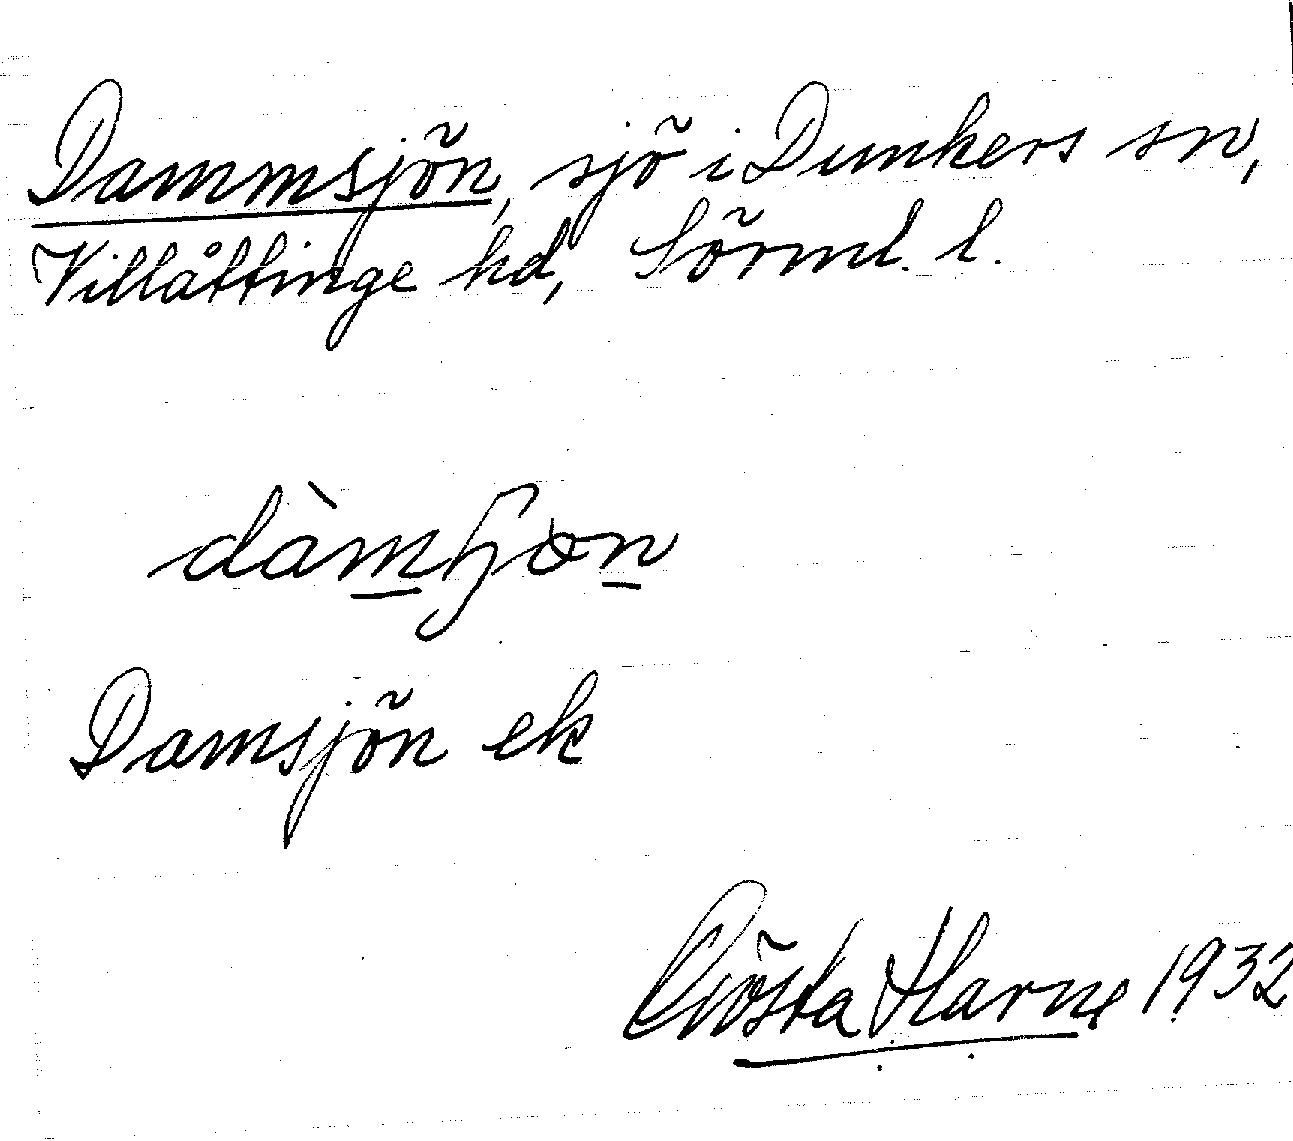 Dammsjön, sjö i Dunkers sn,
Villåttinge hd, Sörml. l.
Damsjön ek
Gösta Harne 1932